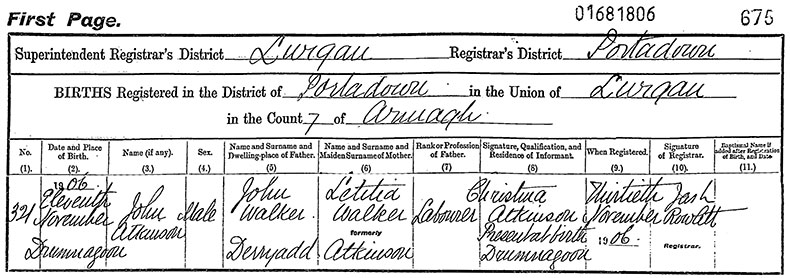 First Page. 01681806 675
Superintendent Registrar's District Lurgan Registrar's District Portadown
BIRTHS Registered in the District of Portadown in the Union of Lurgan
in the County of Armagh.
No. Date and Place of Birth. Name (if any). Sex. Name and Surname and Dwelling-place of Father. Name and Surname and Maiden Surname of Mother. Rank or Profession of Father. Signature, Qualification, and Residence of Informant. When Registered. Signature of Registrar. Baptismal Name if added after Registration of Birth, and Date
(1). (2). (3.) (4.) (5) (6) (7) (8) (9.) (10.) (11.)
321 1906. Eleventh November Drumnagoon John Atkinson Male John Walker. Derryadd Letitia Walker formerly Atkinson Labourer Christina Atkinson Present at birth Drumnagoon Thirtieth November 1906. Rowlett Registrar.